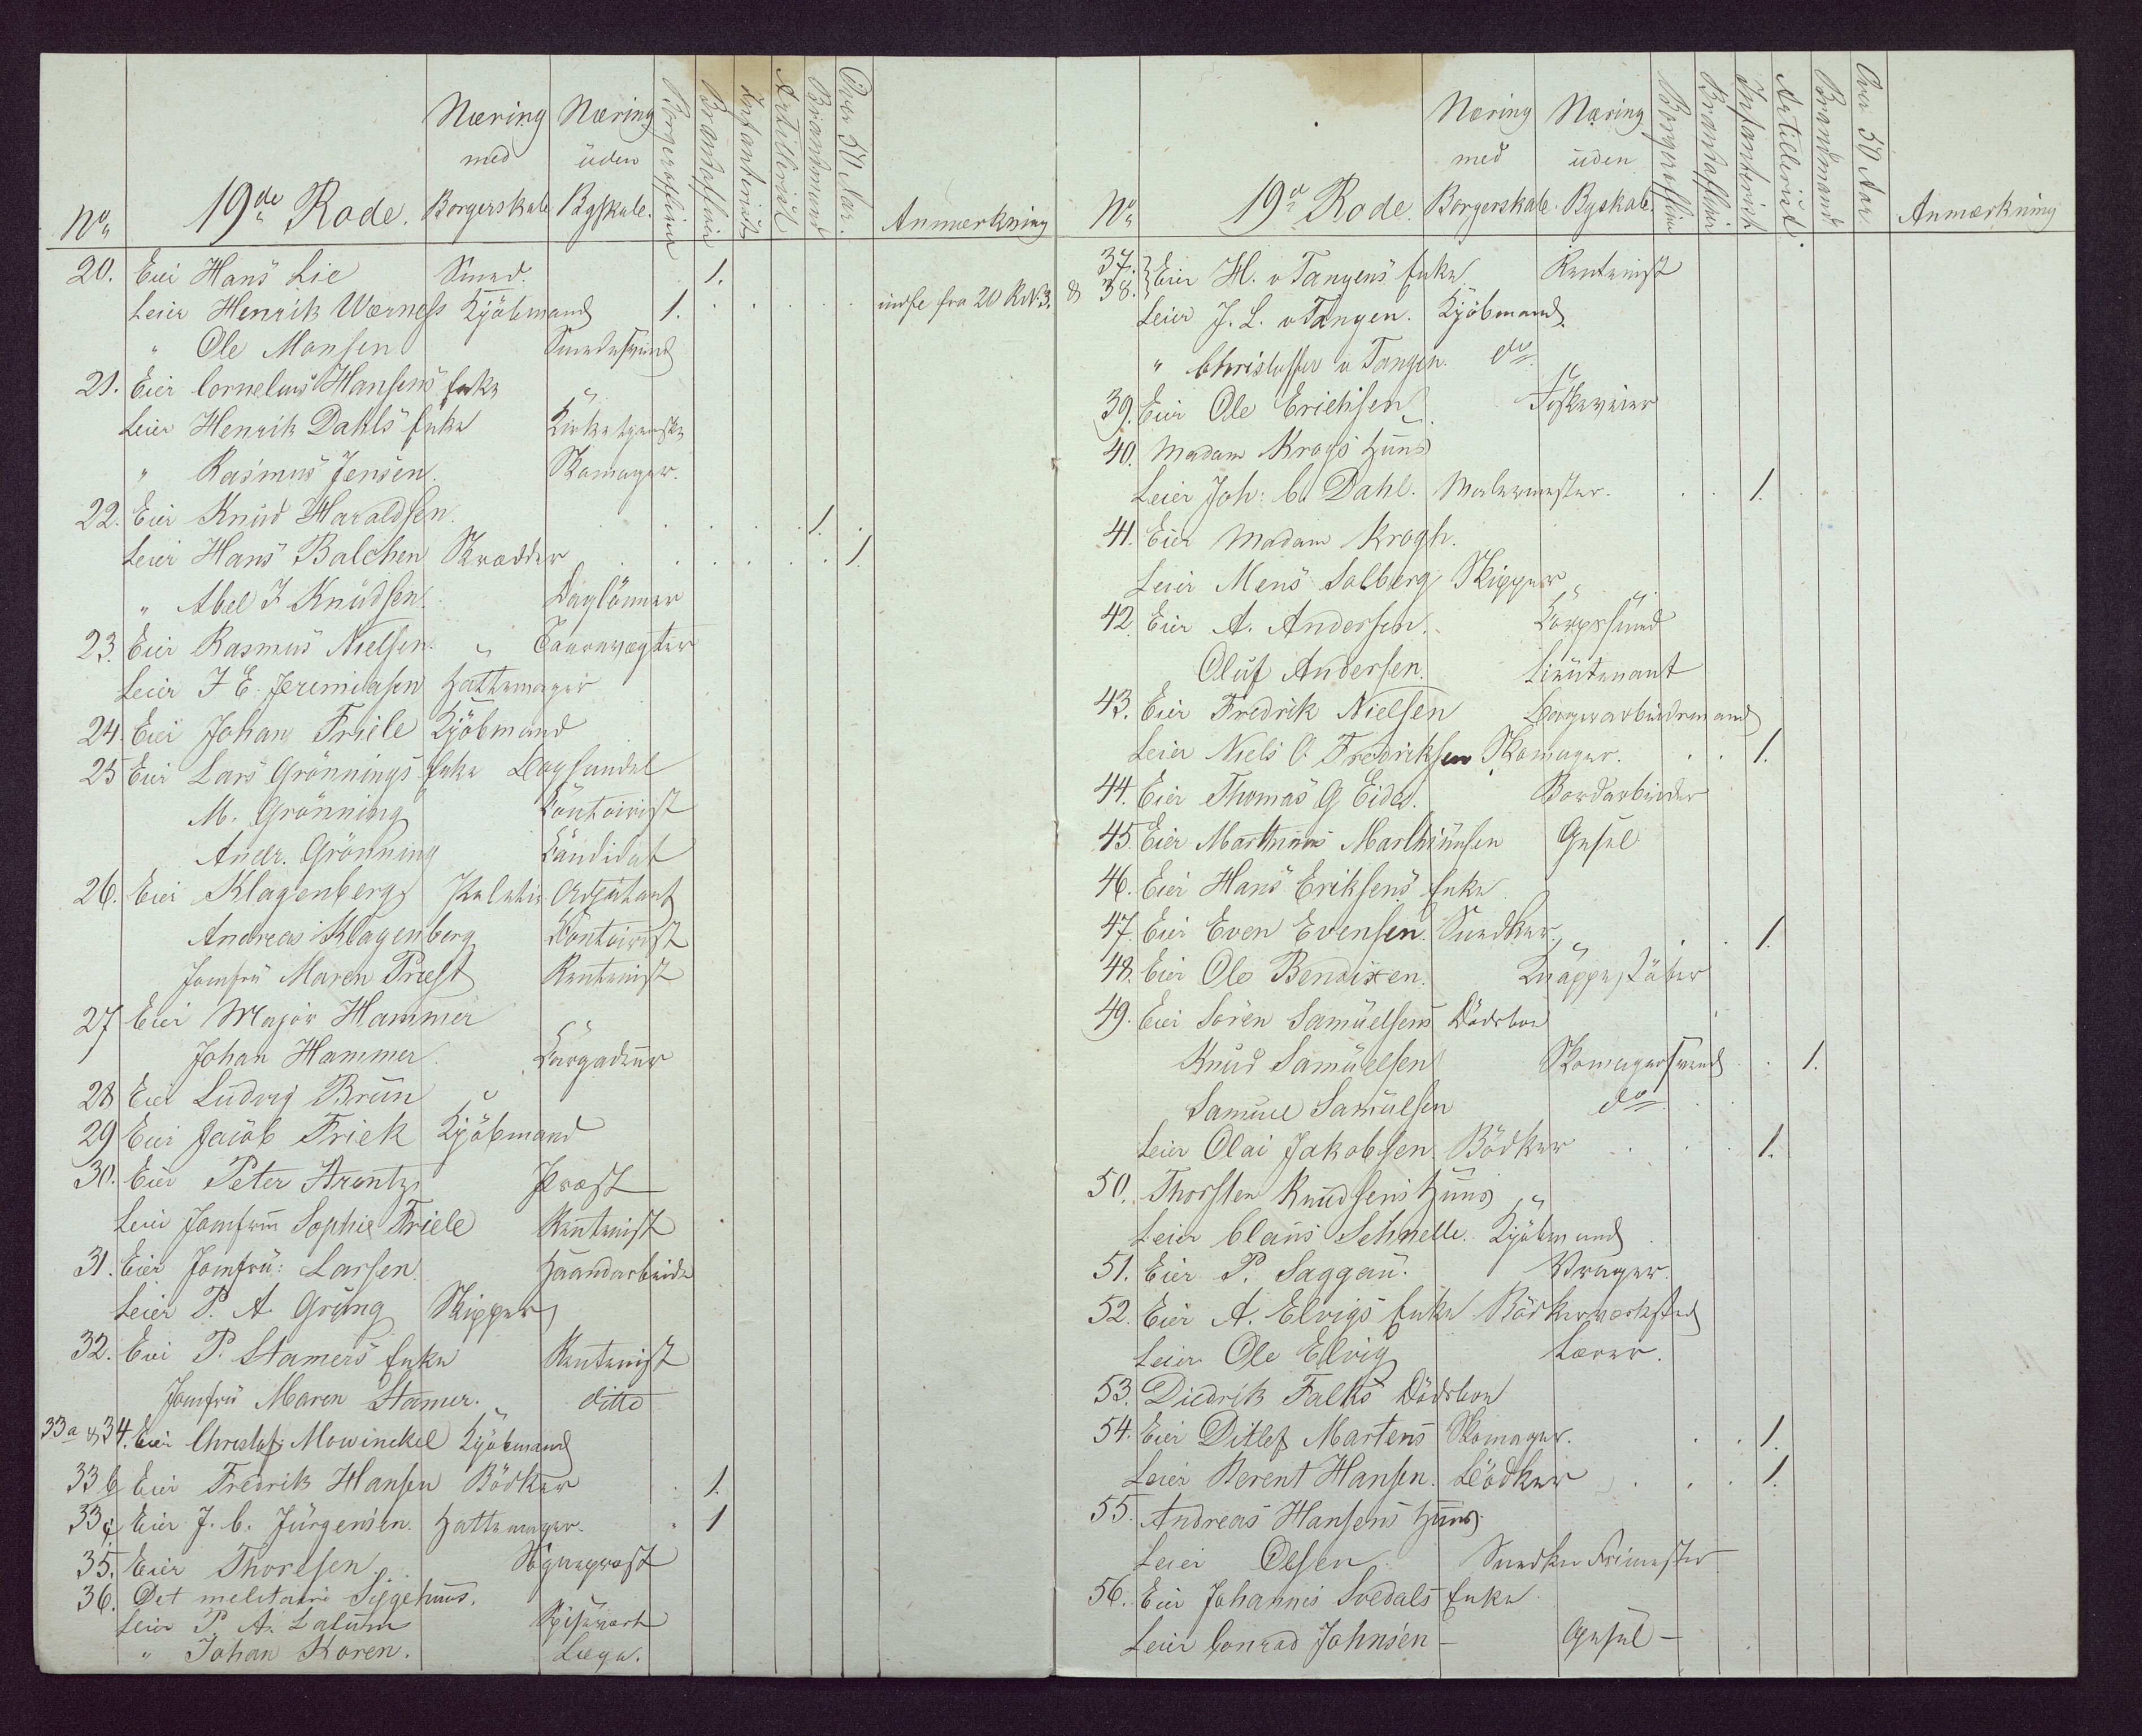 No 19de Rode. Næring med Borgerskab Næring uden Bgskab. Borgerofficier Brandofficier Infanterist Artillerist Brandmand Over 50 Aar. Anmærkning
20. Eier Hans Lie Smed. 1.
Leier Henrik Werness Kjöbmand 1. indfl fra 20 R. N. 3.
" Ole Monsen Smedesvend
21. Eier Cornelius Hansens Enke "
Leier Henrik Dahls Enke
" Rasmus Jensen. Skomager.
22. Eier Knud Haraldsen. 1.
Leier Hans Balchen Skrædder 1
" Abel J Knudsen. Daglönner
23. Eier Rasmus Nielsen. " Taarnvægter
Leier J E. Jeremiasen Hattemager
24. Eier Johan Friele Kjöbmand
25 Eier Lars Grönnings Enke Boghandel
M. Grönning Contoirist
Andr. Grönning Candidat
26. Eier Klagenberg Adjutant
Andreas Klagenberg Contoirist
Jomfru Maren Priest Rentenist
27 Eier Major Hammer "
Johan Hammer. Corgadeur
28 Eier Ludvig Brun "
29 Eier Jacob Friele Kjöbmand
30. Eier Peter Arentz Præst
Leier Jomfru Sophie Friele Rentenist
31. Eier Jomfru: Larsen. Haandarbeide
Leier P. A. Grung Skipper
32. Eier P. Stamers Enke Rentenist
Jomfru Maren Stamer. ditto
33a & 34. Eier Christof: Mowinckel Kjöbmand
33b Eier Fredrik Hansen Bödker 1.
33c Eier J. C. Jürgensen. Hattemager. 1
35. Eier Thoresen. Sognepræst
36. Det militaire Sygehuus.
Leier P. A. Latum
" Johan Koren. Læge.
No 19de Rode. Næring med Borgerskab. Næring uden Bgskab. Borgerofficier Brandofficier Infanterist Artillerist. Brandmand Over 50 Aar Anmærkning
37. & 38. Eier H. v Tangens Enke Rentenist
Leier J. L. v Tangen. Kjöbmand
" Christoffer v Tangen. do
39. Eier Ole Erichsen Fiskevrager
40. Madam Krogs Huus
Leier Joh: C. Dahl. Malermester. 1.
41. Eier Madam Krogh.
Leier Mens Solberg Skipper "
42. Eier A. Andersen.
Oluf Andersen. Lieutenant
43. Eier Fredrik Nielsen Borgerarbeidsmand
Leier Niels O Fredriksen Skomager. 1.
44. Eier Thomas G Eide. Bordarbeider
45. Eier Marthinus Marthinusen Gesel
46. Eier Hans Eriksens Enke
47. Eier Even Evensen. Snedker 1.
48. Eier Ole Bendixen. Knappestöber
49. Eier Sören Samuelsens Dödsboe
Knud Samuelsen Skomagersvend 1.
Samuel Samuelsen do
Leier Olai Jakobsen. Bödker 1.
50. Thorsten Knudsens Huus "
Leier Claus Schnelle. Kjöbmand
51. Eier P. Saggau. Vrager.
52. Eier A. Elvigs Enke Bödkerværksted
Leier Ole Elvig Lærer.
53. Diedrik Falks Dödsboe
54. Eier Ditlef Martens Skomager. 1.
Leier Berent Hansen. Bödker 1.
55. Andreas Hansens Huus
Leier Olsen. Snedker Frimester
56. Eier Johannis Svedals Enke
Leier Conrad Johnsen - Gesel -